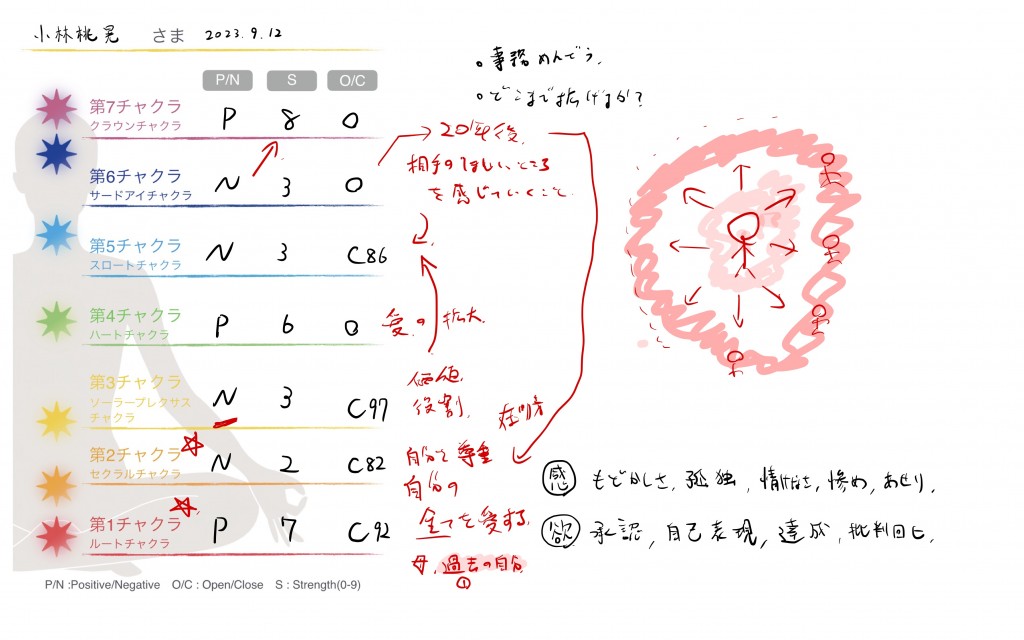 小林桃晃 さま 2023.9.12
P/N S O/C
第7チャクラ
クラウンチャクラ
P 8 O
第6チャクラ
サードアイチャクラ
N 3 O
第5チャクラ
スロートチャクラ
N 3 C86
第4チャクラ
ハートチャクラ
P 6 O
第3チャクラ
ソーラープレクサス
チャクラ
N 3 C97
第2チャクラ
セクラルチャクラ
N 2 C82
第1チャクラ
ルートチャクラ
P 7 C92
P/N :Positive/Negative O/C : Open/Close S : Strength(0-9)
。事務めんどう.
。どこまで拡げるか?
20年後.
相手のほしいところ
を感じていくこと
愛の拡大.
価値.
役割.
自分を尊重
自分の
全てを愛する.
母, 過去の自分
①
感 もどかしさ, 孤独, 情けなさ, 惨め, あせり.
欲 承認, 自己表現, 達成, 批判回ヒ.